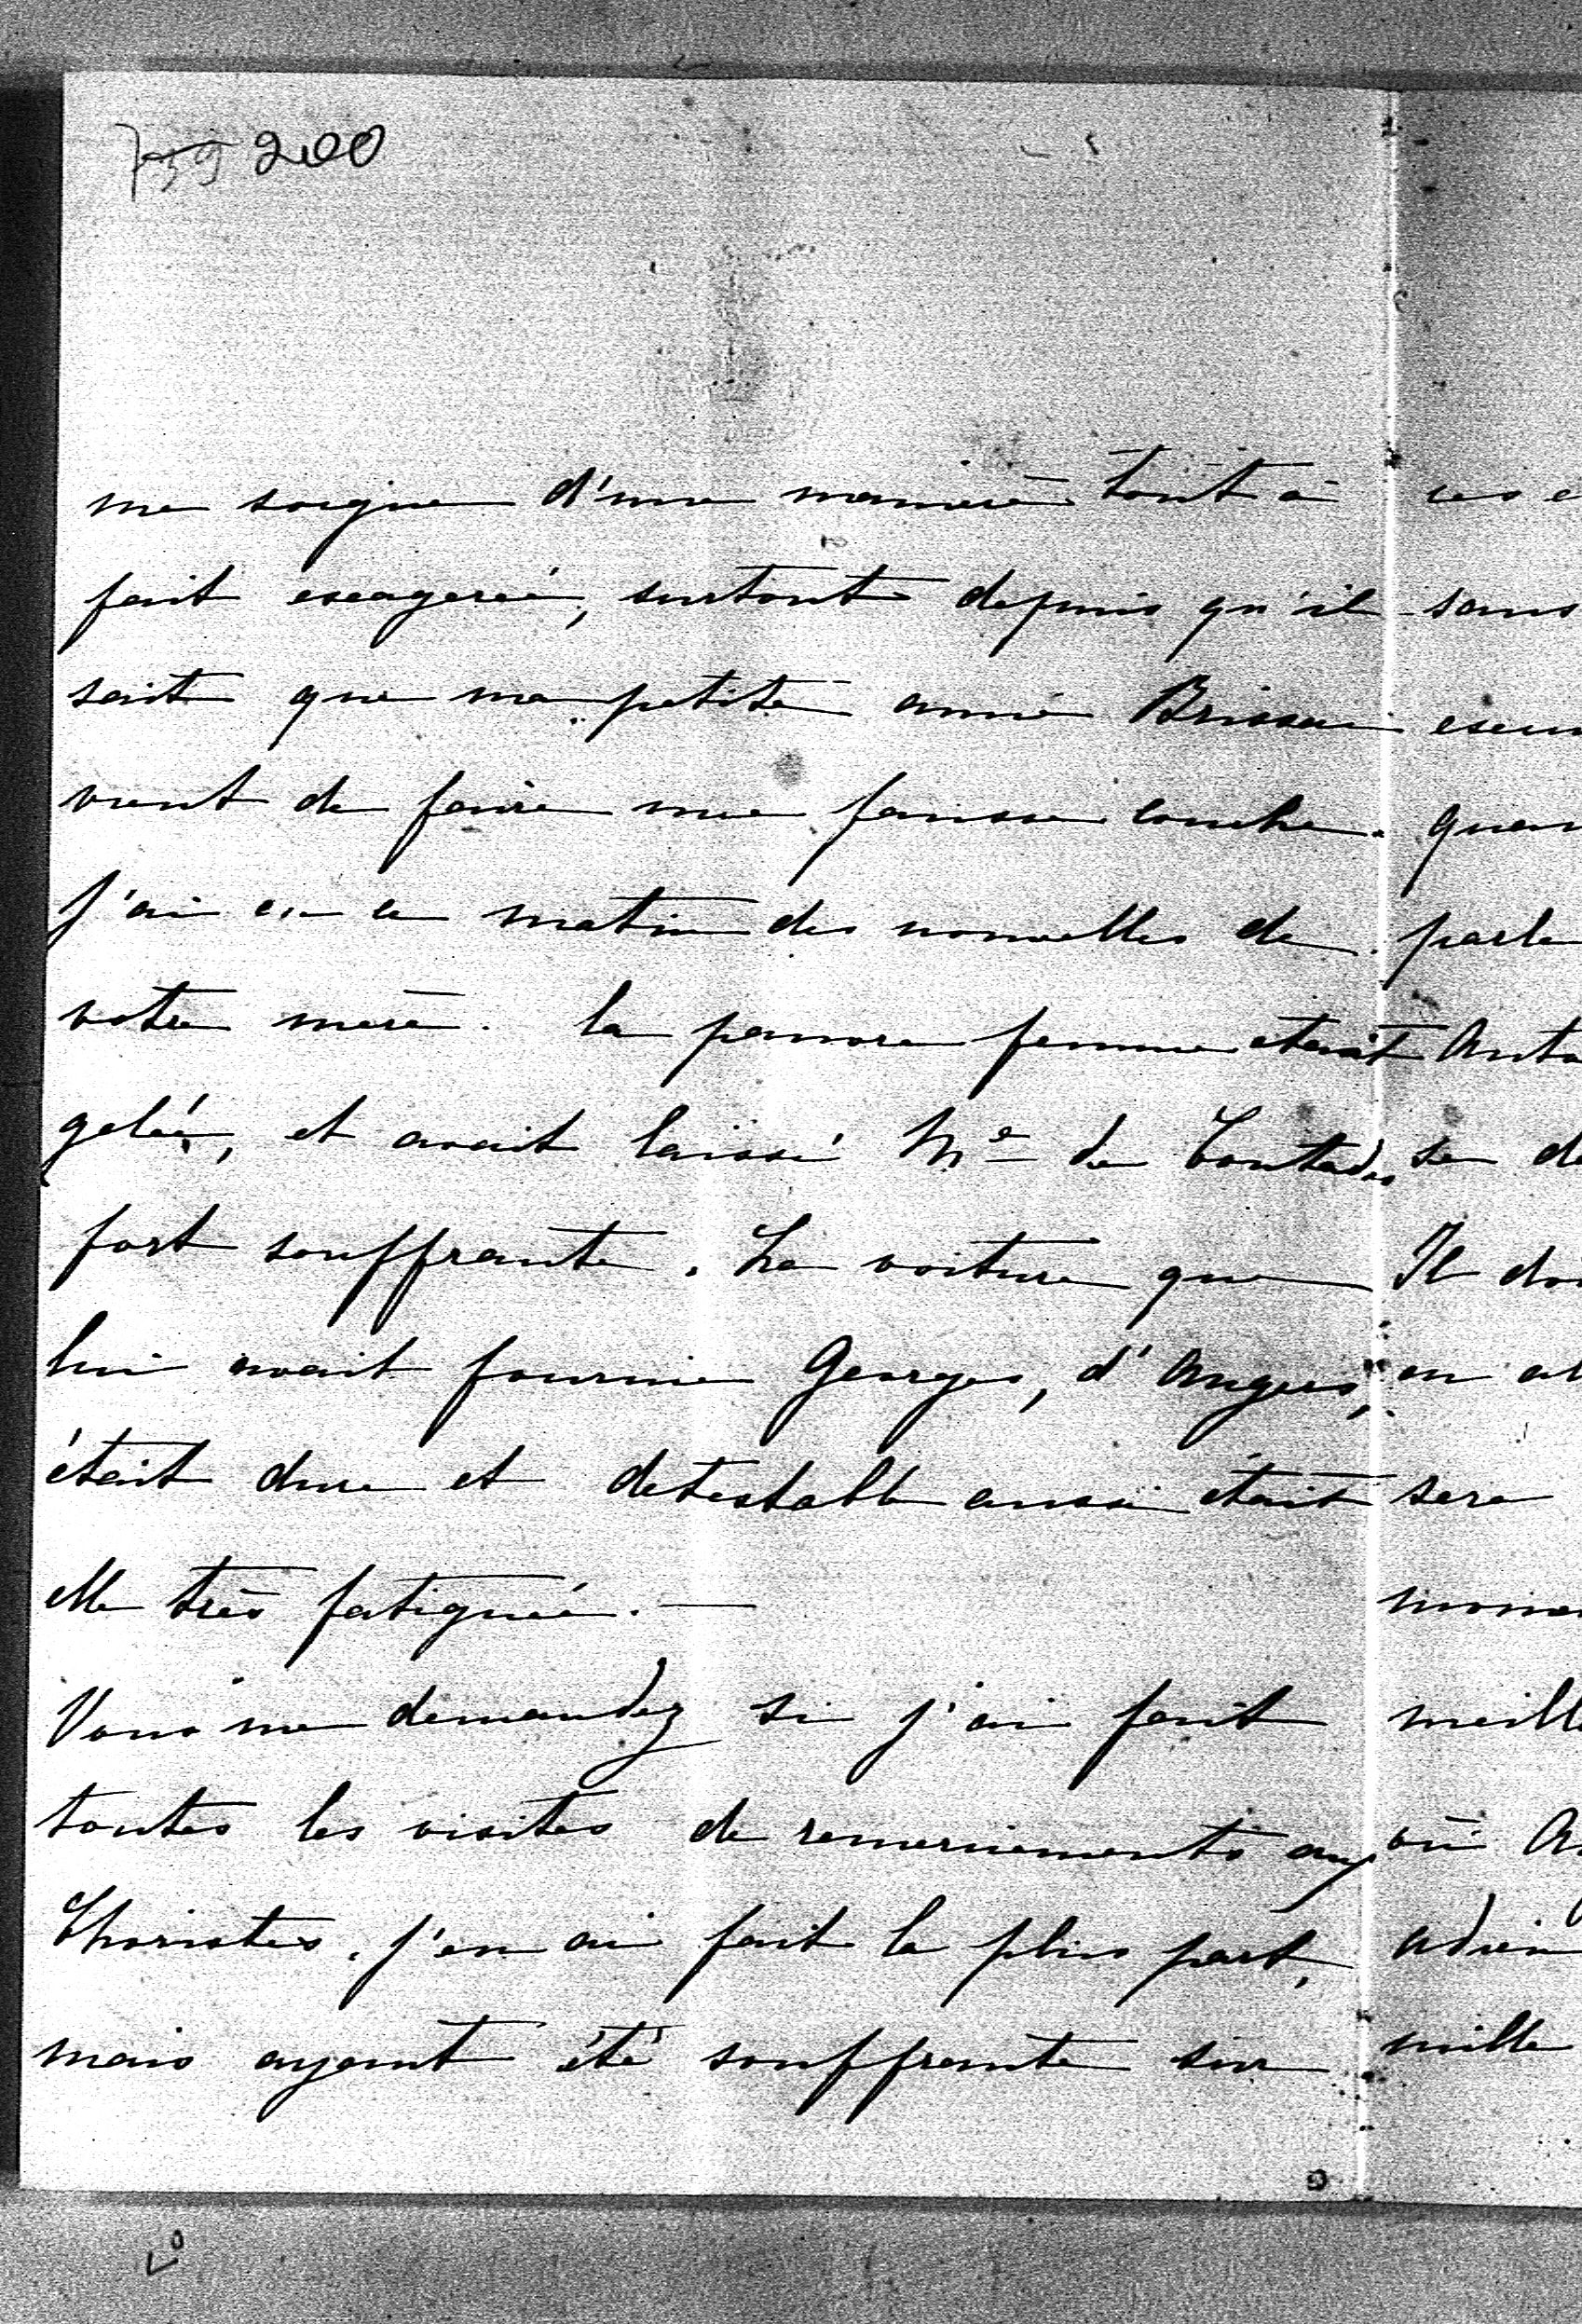 759 200
me soigne d'une manière tout à
fait exagerée, surtout depuis qu'il
sait que ma petite amie Brissac
vient de faire une fausse couche.
J'ai eu ce matin des nouvelles de
votre mère. la pauvre femme etait
gelée, et avait laissé Me de Contades
fort souffrante. La voiture que
lui avait fournie Georges, d'Angers,
était dure et detestable aussi était
elle très fatiguée. —
Vous me demandez si j'ai fait
toutes les visites de remerciements aux
Choristes. J'en ai fait la plus part,
mais ayant été souffrante sur
sans
parle
se
Il
sera
où
mille